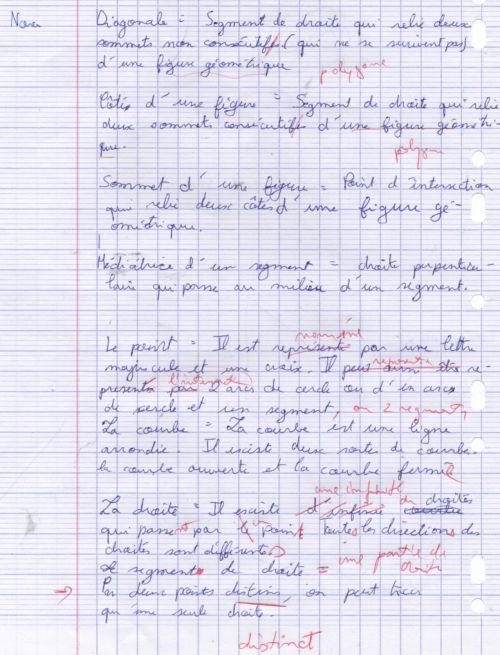 Diagonale = Segment de droite qui relie deux
sommets non consécutifs (qui ne se suivent pas)
d'une figure géométrique
polygone
Côtés d'une figure = Segment de droite qui relie
deux sommets consécutifs d'une figure géométri-
que.
polygone
Sommet d'une figure = Point d'intersection
qui relie deux côtés d'une figure gé-
ométrique.
Médiatrice d'un segment = droite perpendicu-
laire qui passe au milieu d'un segment.
nommé
Le point = Il est représenté par une lettre
majuscule et une croix. Il peut être re-
présenté par 2 arcs de cercle ou d'un arc
l'intersection
de cercle et un segment, ou 2 segments
La courbe = La courbe est une ligne
arrondie. Il existe deux sortes de courbe.
la courbe ouverte et la courbe fermée
une infinité de droites
La droite = Il existe d'infinie
qui passent par le point toutes les directions des
droites sont différentes
segment de droite = une partie de
droite
Par deux points distincts, on peut tracer
qu'une seule droite.
distinct